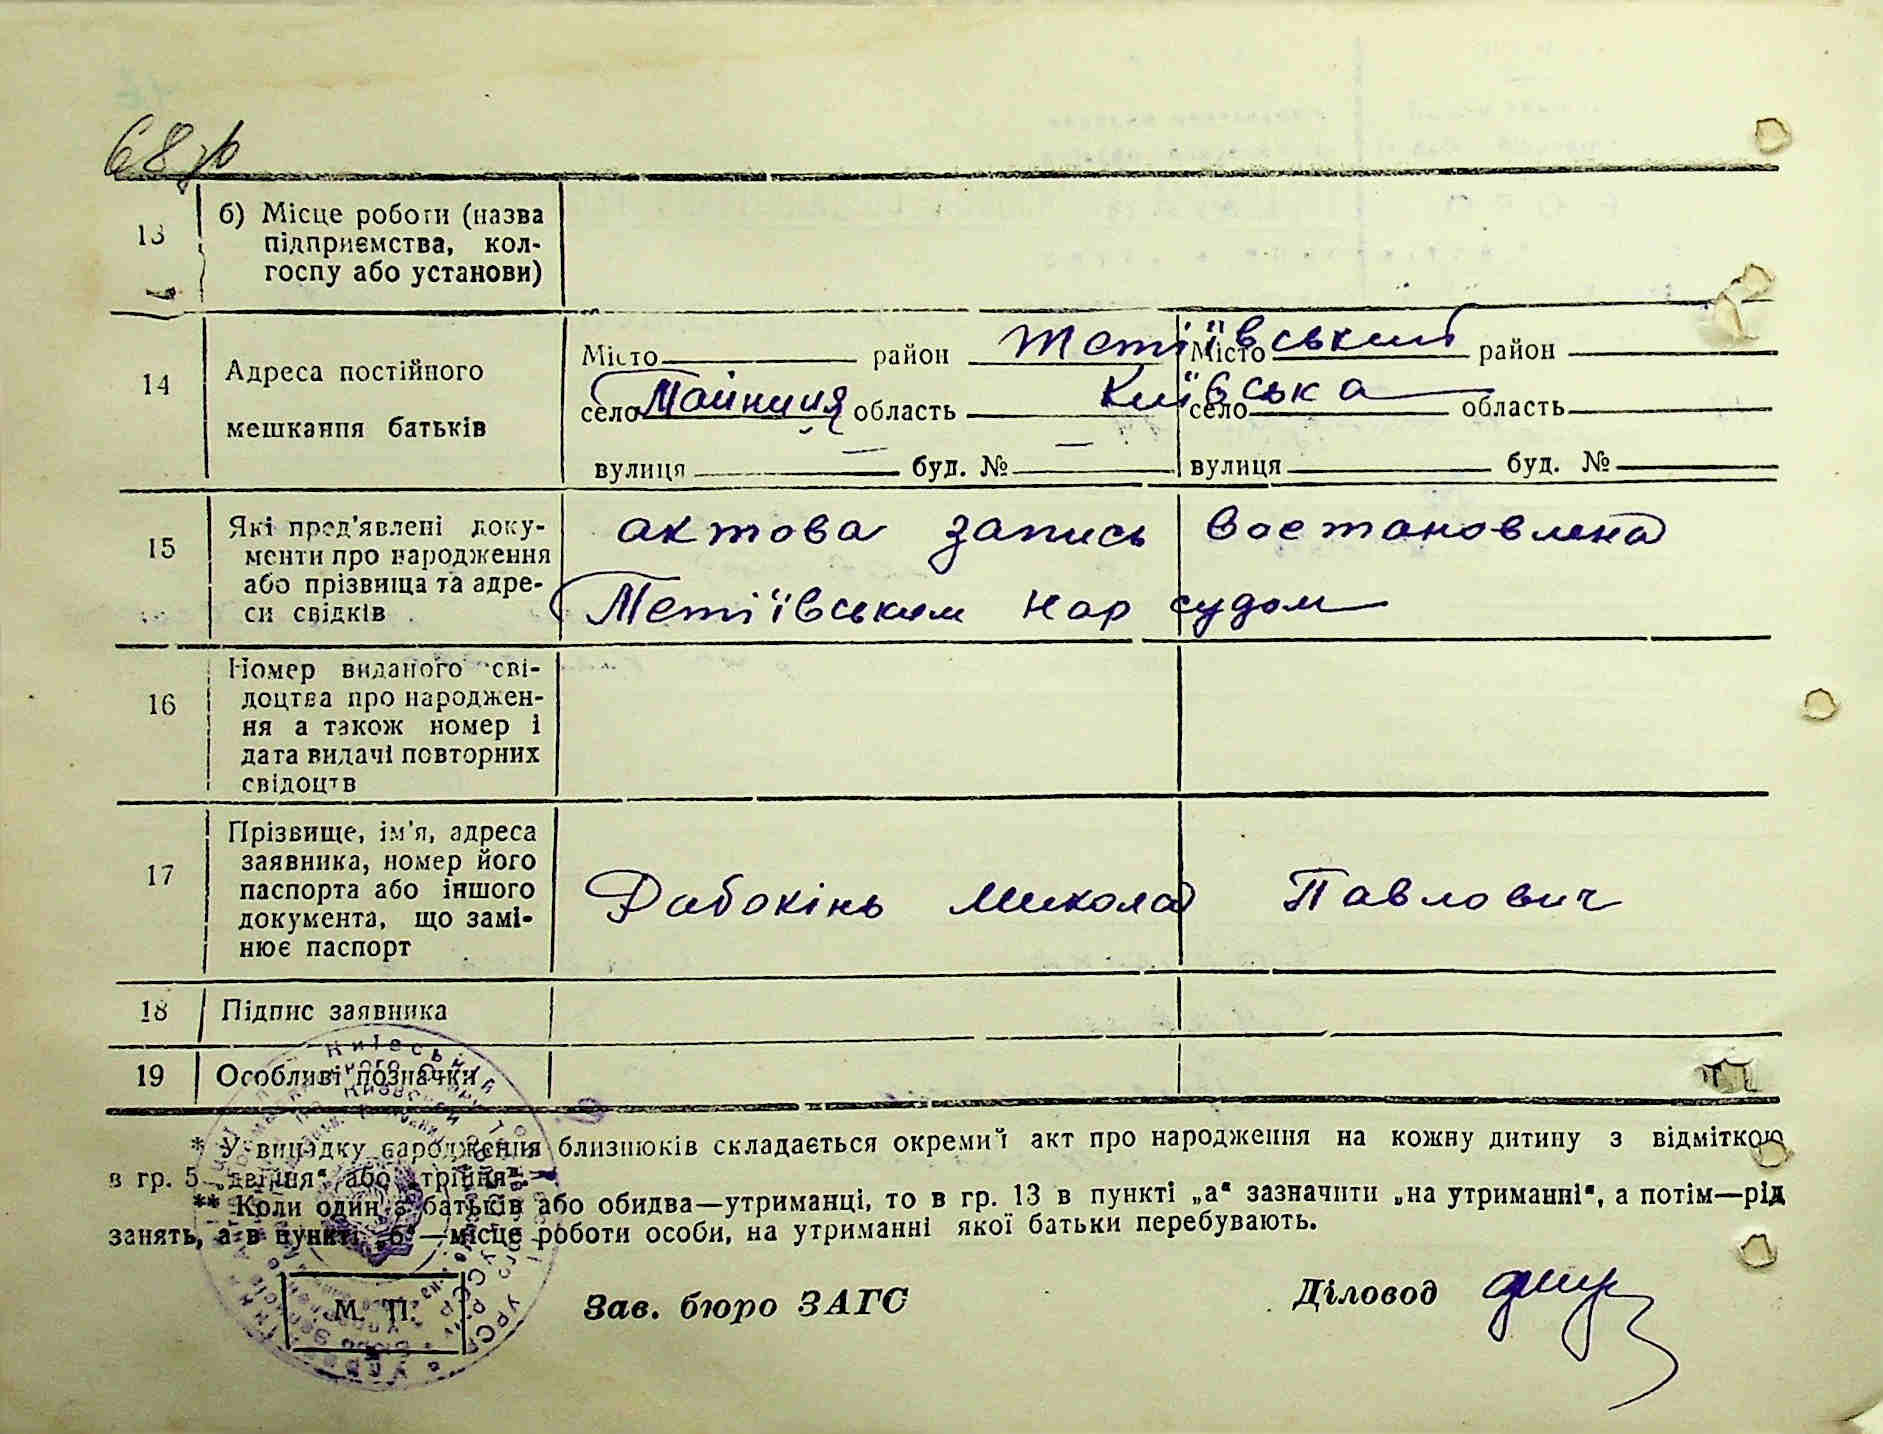 68зв
13 б) Місце роботи (назва
підприємства, кол-
госпу або установи)
14 Адреса постійного
мешкання батьків
Місто район Тетіївський Місто район
село область Київська село область
вулиця — буд. № — вулиця буд. №
15 Які пред'явлені доку-
менти про народження
або прізвища та адре-
си свідків
актова запись востановлена
Тетіївським нар судом
16 Номер виданого сві-
доцтва про народжен-
ня а також номер і
дата видачі повторних
свідоцтв
17 Прізвище, ім'я, адреса
заявника, номер його
паспорта або іншого
документа, що замі-
нює паспорт
Рабокінь Микола Павлович
18 Підпис заявника
19 Особливі позначки
* У випадку народження близнюків складається окремий акт про народження на кожну дитину з відміткою
в гр. 5 „двійня“ або „трійня“.
** Коли один з батьків або обидва—утриманці, то в гр. 13 в пункті „а“ зазначити „на утриманні“, а потім—рід
занять, а в пункті „б“—місце роботи особи, на утриманні якої батьки перебувають.
М. П. Зав. бюро ЗАГС Діловод